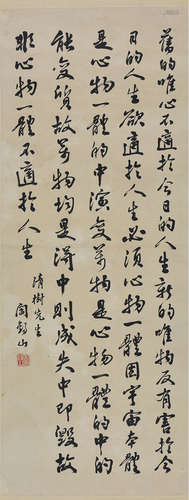 舊的唯心不適於今日的人生新的唯物反有害於今
日的人生欲適於人生必須心物一體因宇宙本體
是心物一體的中演變萬物是心物一體的中的
能變質故萬物均是得中則成失中即毀故
非心物一體不適於人生
清樹先生
閻錫山